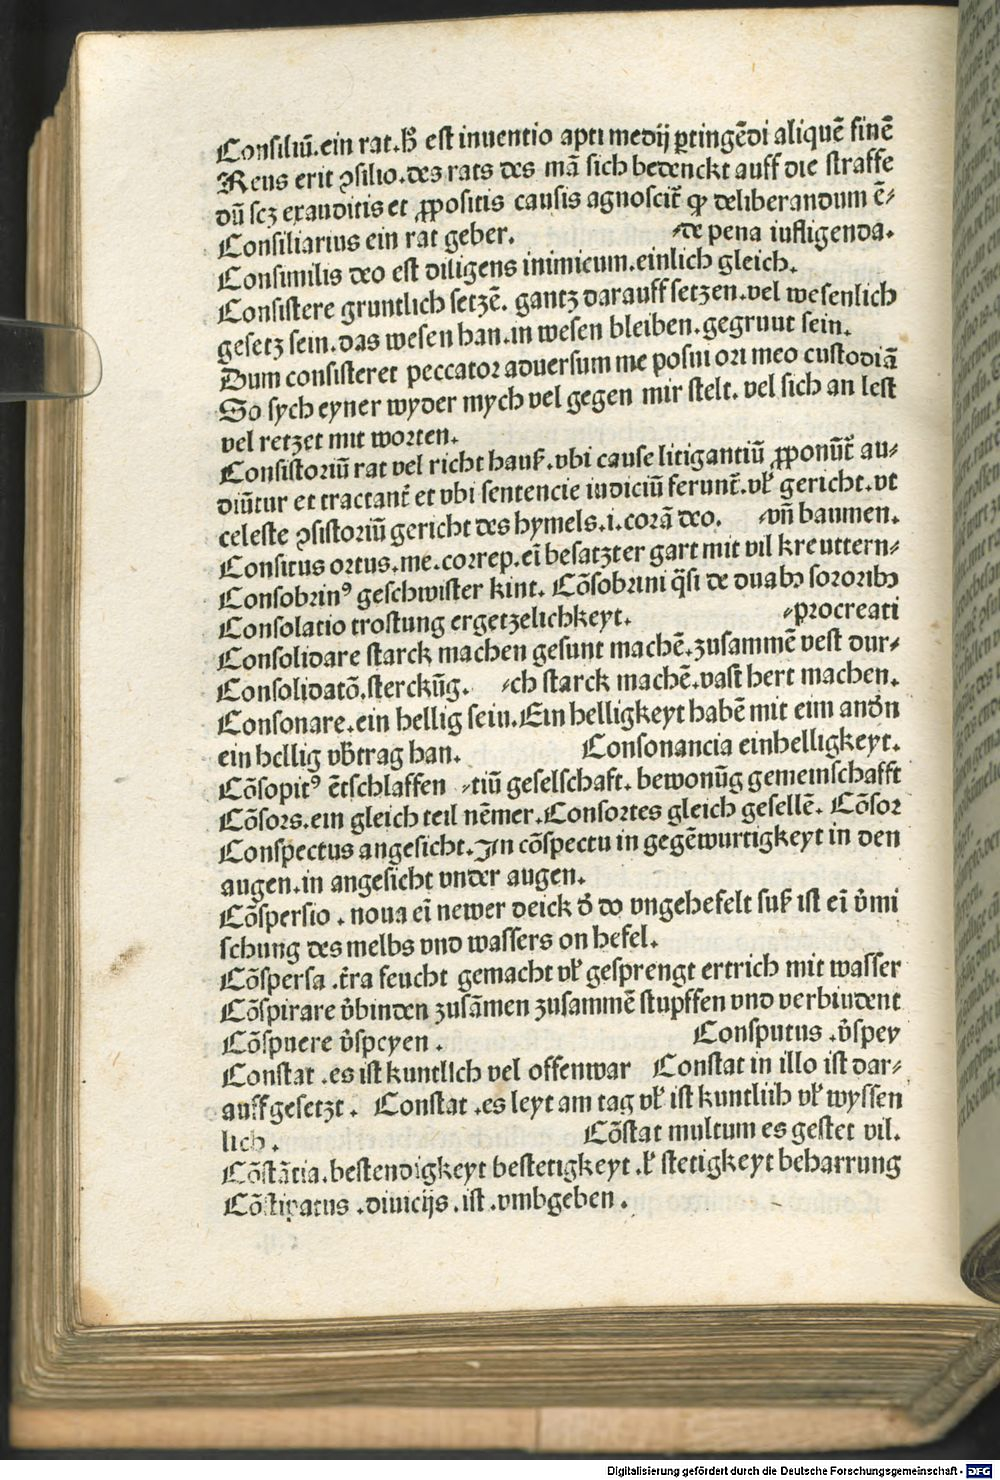 Consiliū.ein rat.ħ est inuentio apti medij ꝑtingēdi aliquē finē
Reus erit ꝯsilio.des rats des mā sich bedenckt auff die straffe
dū scꝫ exauditis et ꝓpositis causis agnoscit̄ ꝙ deliberandum ē⸗
Consiliarius ein rat geber. ⸗de pena iufligenda.
Consimilis deo est diligens inimicum.einlich gleich.
Consistere gruntlich setzē. gantz darauff setzen.vel wesenlich
gesetz sein.das wesen han.in wesen bleiben.gegruut sein.
Dum consisteret peccator aduersum me posui ori meo custodiā
So sych eyner wyder mych vel gegen mir stelt. vel sich an lest
vel retzet mit worten.
Consistoriū rat vel richt hauß.vbi cause litigantiū ꝓponūt̄ au⸗
diūtur et tractant̄ et vbi sentencie iudiciū ferunt̄.vł gericht.vt
celeste ꝯsistoriū gericht des hymels.i.corā deo. ⸗vn̄ baumen.
Consitus ortus.me.correp.eī besatzter gart mit vil kreuttern⸗
Consobrinꝰ geschwister kint. Cōsobrini q̄si de duabꝫ sororibꝫ
Consolatio trostung ergetzelichkeyt. ⸗procreati
Consolidare starck machen gesunt machē.zusammē vest dur⸗
Consolidatō.sterckūg. ⸗ch starck machē.vast hert machen.
Consonare.ein hellig sein.Ein helligkeyt habē mit eim andn̄
ein hellig vb̄trag han. Consonancia einhelligkeyt.
Cōsopitꝰ ētschlaffen ⸗tiū geselschaft. bewonūg gemeinschafft
Cōsors.ein gleich teil nēmer.Consortes gleich gesellē. Cōsor
Conspectus angesicht.In cōspectu in gegēwurtigkeyt in den
augen.in angesicht vnder augen.
Cōspersio . noua eī newer deick d̄ do vngehefelt suß ist eī v̄mi
schung des melbs vnd wassers on hefel.
Cōspersa .t̄ra feucht gemacht vł gesprengt ertrich mit wasser
Cōspirare v̄binden zusāmen zusammē stupffen vnd verbiudent
Cōspuere v̄speyen . Consputus .v̄spey
Constat .es ist kuntlich vel offenwar Constat in illo ist dar⸗
auff gesetzt . Constat .es leyt am tag vł ist kuntliih vł wyssen
lich . Cōstat multum es gestet vil.
Cōstātia.bestendigkeyt bestetigkeyt .ł stetigkeyt beharrung
Cōstipatus .diuicijs.ist .vmbgeben .
Digitalisierung gefördert durch die Deutsche Forschungsgemeinschaft - DFG